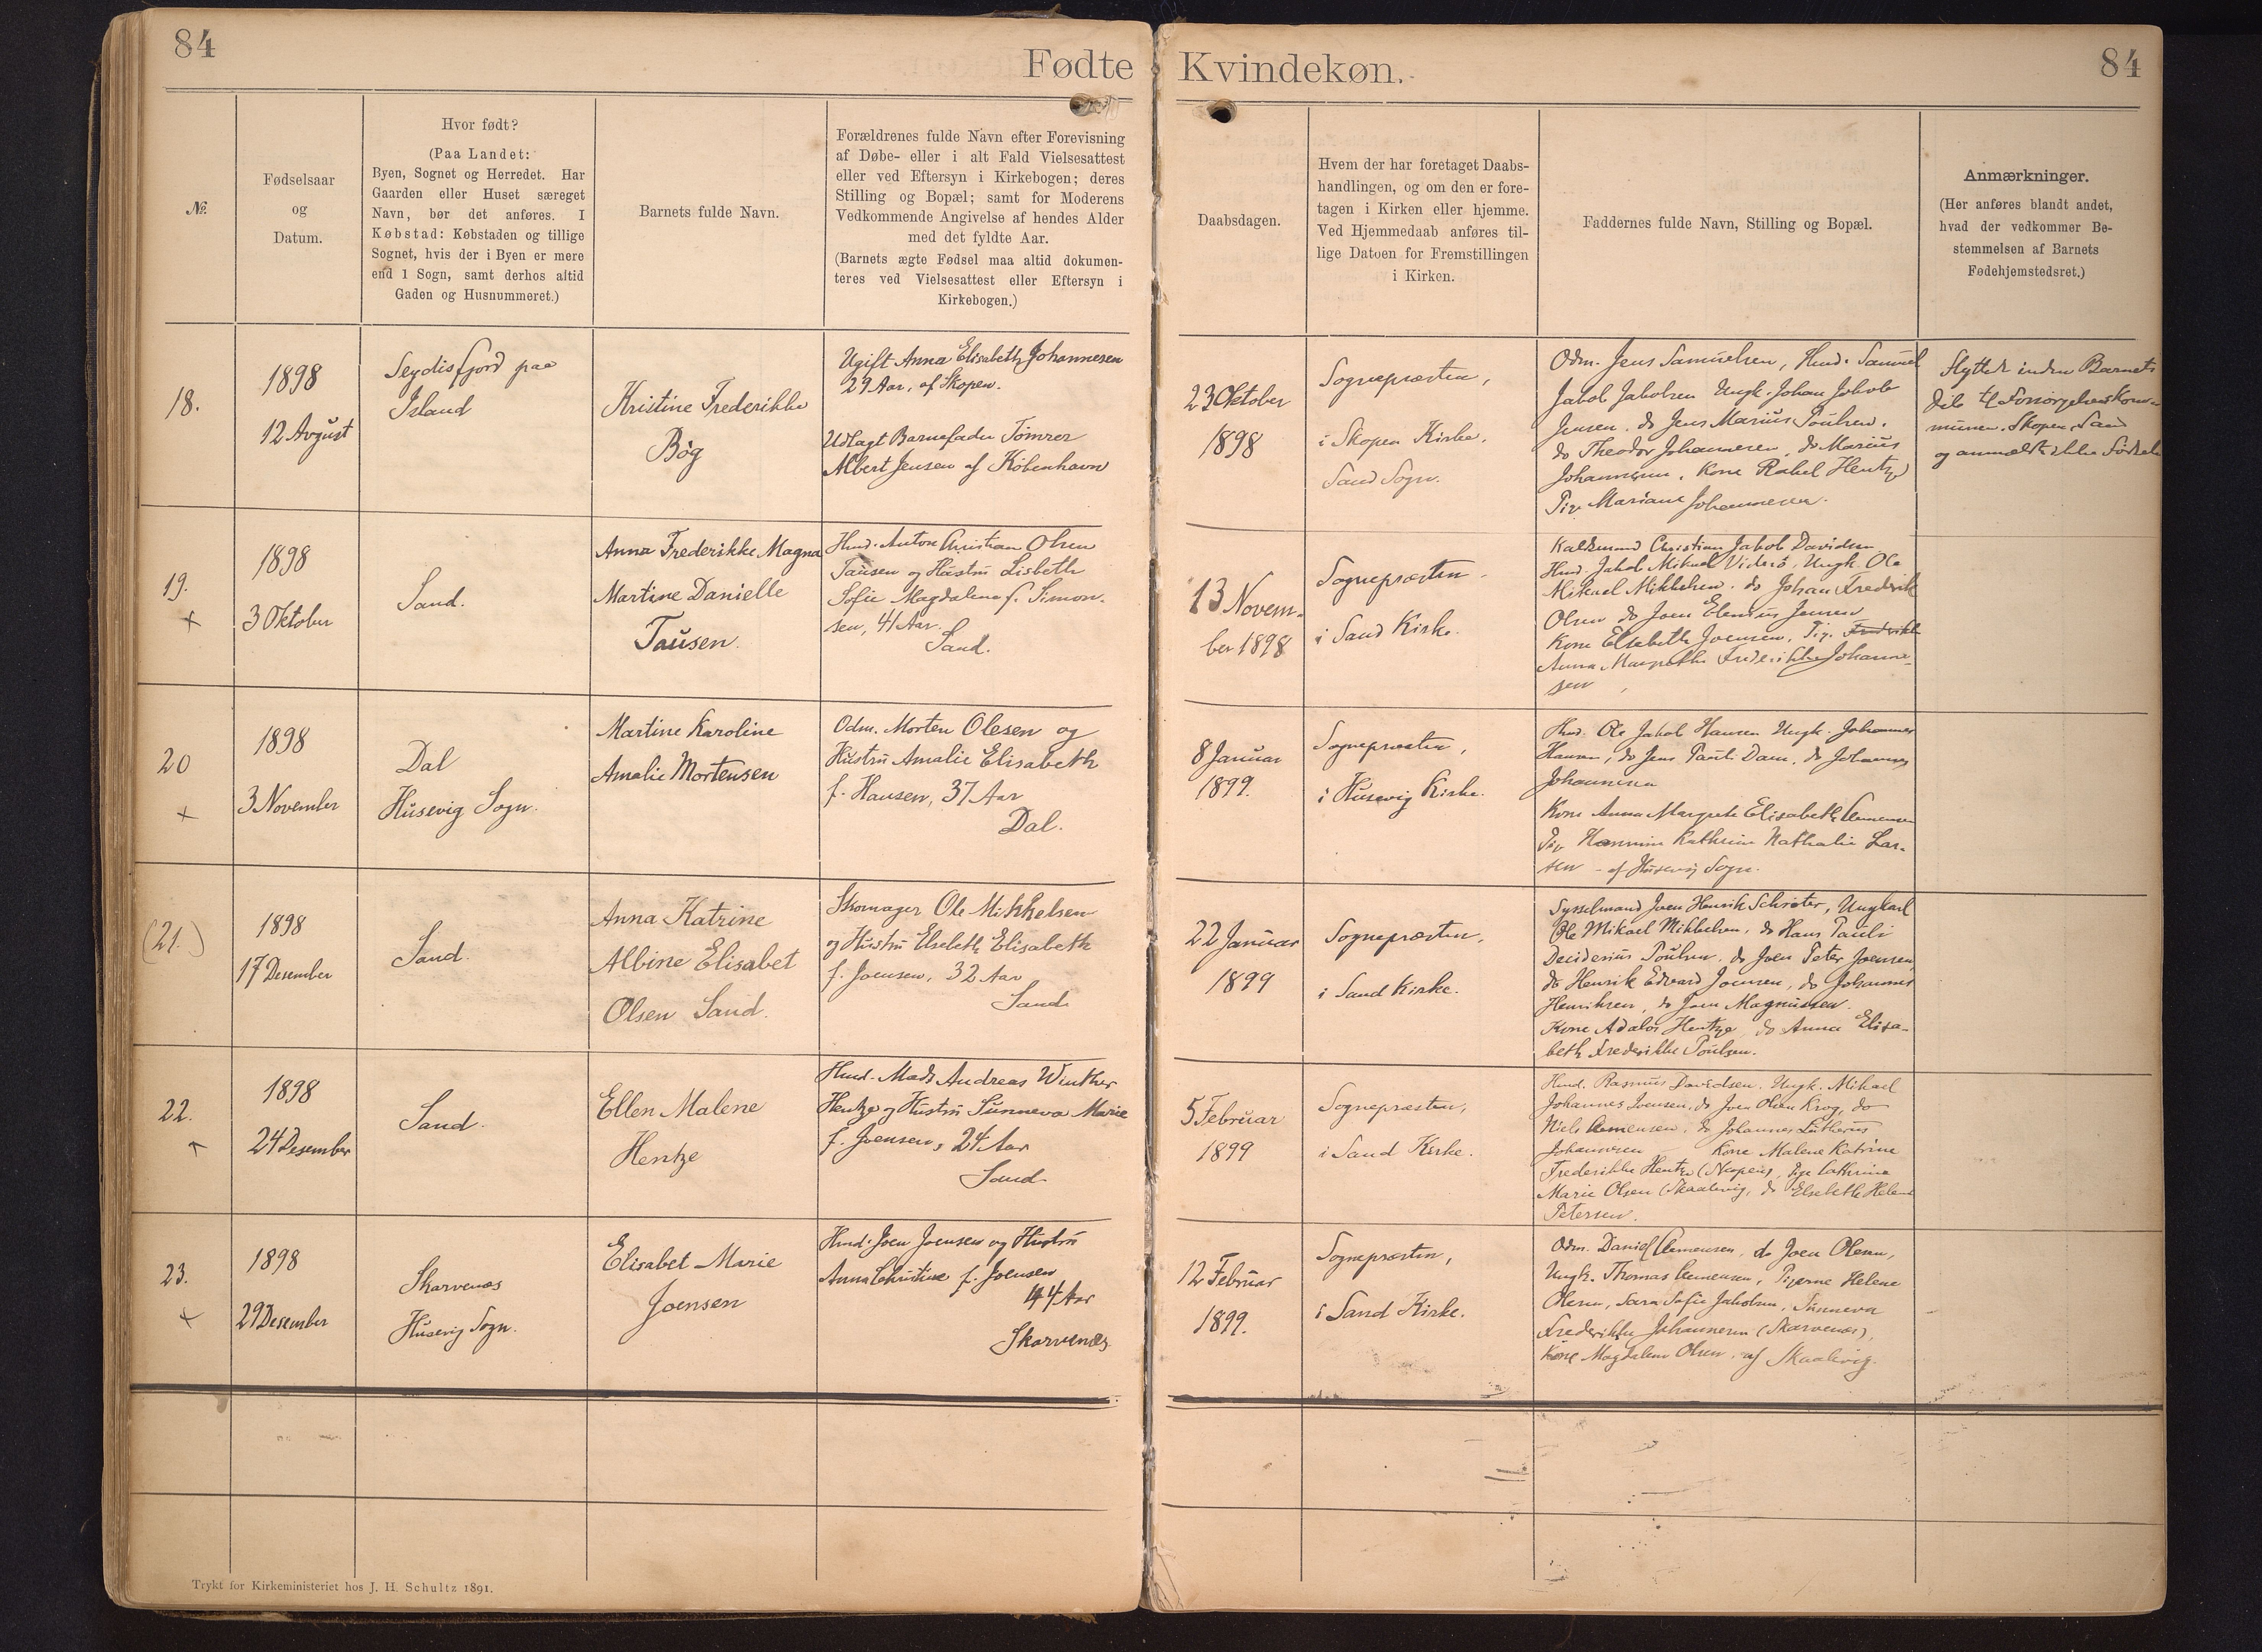 84
Fødte
Kvindekøn.
84
№.
Fødselsaar
og
Datum.
Hvor født?
(Paa Landet:
Byen, Sognet og Herredet. Har
Gaarden eller Huset særeget
Navn, bør det anføres. I
Købstad: Købstaden og tillige
Sognet, hvis der i Byen er mere
end 1 Sogn, samt derhos altid
Gaden og Husnummeret.)
Barnets fulde Navn.
Forældrenes fulde Navn efter Forevisning
af Døbe- eller i alt Fald Vielsesattest
eller ved Eftersyn i Kirkebogen; deres
Stilling og Bopæl; samt for Moderens
Vedkommende Angivelse af hendes Alder
med det fyldte Aar.
(Barnets ægte Fødsel maa altid dokumen-
teres ved Vielsesattest eller Eftersyn i
Kirkebogen.)
Daabsdagen.
Hvem der har foretaget Daabs-
handlingen, og om den er fore-
tagen i Kirken eller hjemme.
Ved Hjemmedaab anføres til-
lige Datoen for Fremstillingen
i Kirken.
Faddernes fulde Navn, Stilling og Bopæl.
Anmærkninger.
(Her anføres blandt andet,
hvad der vedkommer Be-
stemmelsen af Barnets
Fødehjemstedsret.)
18.
1898
12 Avgust
Seydisfjord paa
Island
Kristine Frederikke
Bøg
Ugift Anna Elisabeth Johannesen
29 Aar, af Skopen.
Udlagt Barnefader Tømrer
Albert Jensen af København
23 Oktober
1898
Sognepræsten,
i Skopen Kirke,
Sand Sogn.
Odm. Jens Samuelsen, Hmd. Samuel
Jakob Jakobsen Ungk. Johan Jakob
Jensen, do Jens Marius Poulsen,
do Theodor Johannesen, do Marius
Johannesen, Kone Rakel Hentze
Pig. Mariane Johannesen.
Flyttet inden Barnets
munen. Skopen, Sand
og anmeldt
19.
×
1898
3 Oktober
Sand.
Anna Frederikke Magna
Martine Danielle
Tausen.
Hmd. Anton Christian Olsen
Tausen og Hustru Lisbeth
Sofie Magdalena f. Simon-
sen, 41 Aar.
Sand.
13 Novem-
ber 1898
Sognepræsten
i Sand Kirke.
Christian Jakob Davidsen
Hmd. Jakob Mikael Viderø, Ungk. Ole
Mikael Mikkelsen, do Johan Frederik
Olsen do Joen Jensen
Kone Elsebeth Joensen, Pig.
Anna Margrethe Frederikke Johanne-
sen
20
×
1898
3 November
Dal
Húsevig Sogn.
Martine Karoline
Amalie Mortensen
Odm. Morten Olesen og
Hustru Amalie Elisabeth
f. Hansen, 37 Aar
Dal.
8 Januar
1899.
Sognepræsten,
i Húsevig Kirke.
Hmd. Ole Jakob Hansen Ungk. Johannes
Hansen, do Jens Pauli Dam, do Johannes
Johannesen
Kone Anna Margrete Elisabeth Clemensen
Pig Kathrine Nathalie Lar-
sen - af Húsevig Sogn.
(21.)
1898
17 Desember
Sand.
Anna Katrine
Albine Elisabet
Olsen Sand.
Skomager Ole Mikkelsen
og Hustru Elsebeth Elisabeth
f. Joensen, 32 Aar
Sand
22 Januar
1899
Sognepræsten,
i Sand Kirke.
Sysselmand Joen Henrik Schrøter, Ungkarl
Ole Mikael Mikkelsen, do Hans Pauli
Deciderius Poulsen, do Joen Peter Joensen,
do Henrik Edvard Joensen, do Johannes
Henriksen, do Joen Magnussen.
Kone Hentze, do Anna Elisa-
beth Frederikke Poulsen.
22.
×
1898
24 Desember
Sand.
Ellen Malene
Hentze
Hmd. Mads Andreas Winther
Hentze og Hustru Sunneva Marie
f. Joensen, 24 Aar
Sand.
5 Februar
1899
Sognepræsten,
i Sand Kirke.
Hmd. Rasmus Davidsen, Ungk. Mikael
Johannes Joensen, do Joen Olsen Krog, do
Niels Clemensen, do Johannes Lutherus
Johannesen Kone Malene Katrine
Frederikke Hentze, Pige Cathrine
Marie Olsen (Skaalevig, do Elsebeth Helene
Petersen.
23.
×
1898
29 Desember
Skarvenæs
Húsevig Sogn.
Elisabet Marie
Joensen
Hmd. Joen Joensen og Hustru
Anna Christine f. Joensen
44 Aar
Skarvenæs
12 Februar
1899.
Sognepræsten,
i Sand Kirke.
Odm. Daniel Clemensen, do Joen Olesen,
Ungk. Thomas Clemensen, Pigerne Helene
Olesen, Sara Sofie Jakobsen, Sunneva
Frederikke Johannesen (Skarvenæs),
Kone Magdalene Olsen, af Skaalevig.
Trykt for Kirkeministeriet hos J. H. Schultz 1891.